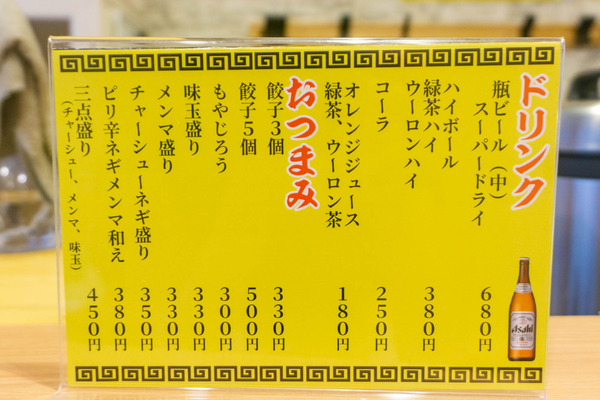 ドリンク
瓶ビール（中）
スーパードライ
680円
ハイボール
緑茶ハイ
ウーロンハイ
380円
コーラ
250円
オレンジジュース
緑茶、ウーロン茶
180円
おつまみ
餃子3個
330円
餃子5個
500円
もやじろう
300円
味玉盛り
330円
メンマ盛り
330円
チャーシューネギ盛り
350円
ピリ辛ネギメンマ和え
380円
三点盛り
（チャーシュー、メンマ、味玉）
450円
Asahi